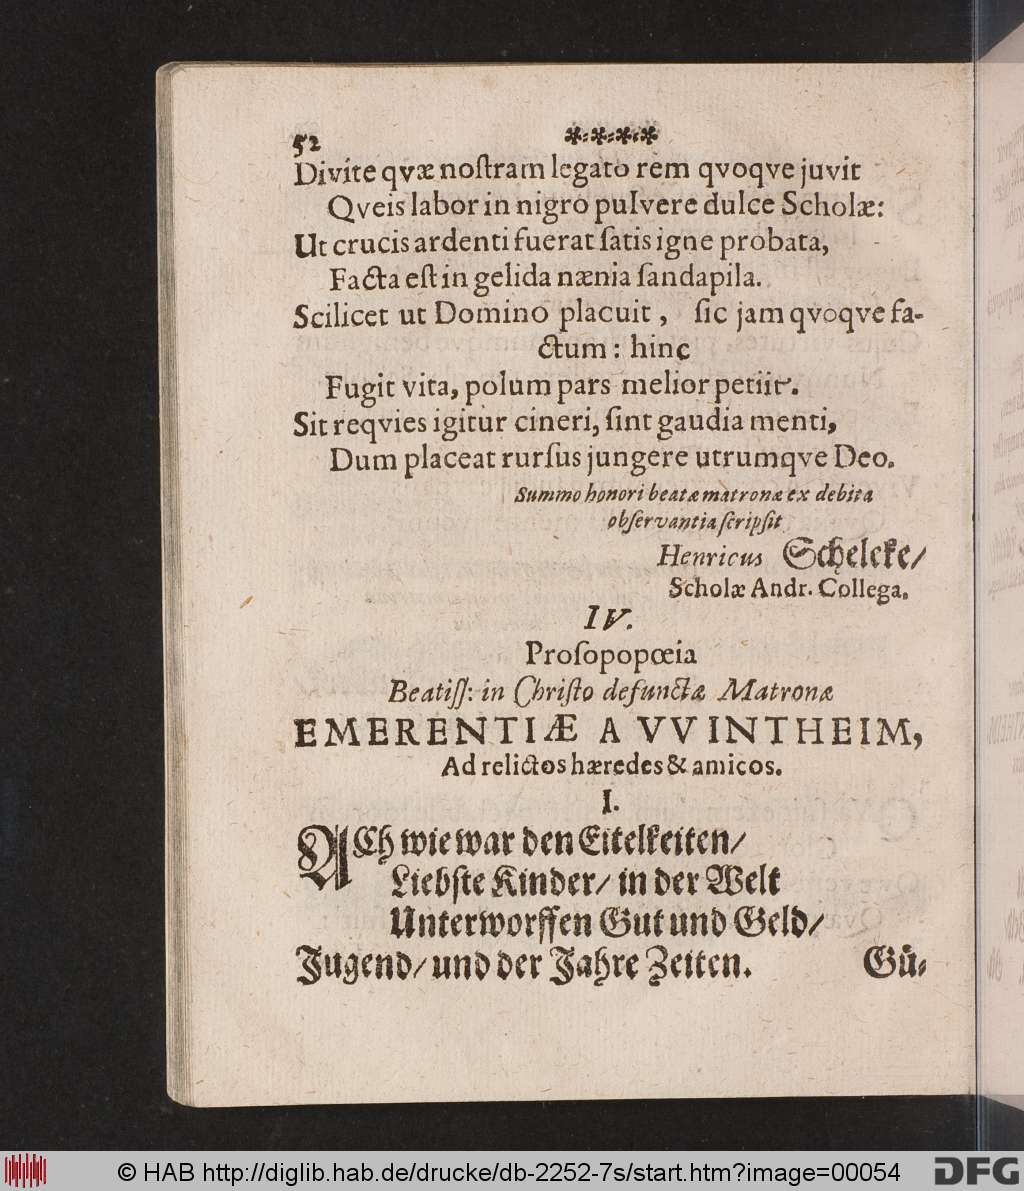 52 ✲:✲:✲:✲
Divite qvæ noſtram legato rem qvoqve juvit
Qveis labor in nigro pulvere dulce Scholæ:
Ut crucis ardenti fuerat ſatis igne probata,
Facta eſt in gelida nænia ſandapila.
Scilicet ut Domino placuit, ſic jam qvoqve fa-
ctum: hinc
Fugit vita, polum pars melior petiit.
Sit reqvies igitur cineri, ſint gaudia menti,
Dum placeat rurſus jungere utrumqve Deo.
Summo honori beatæ matronæ ex debita
obſervantia ſcripſit
Henricus Schelcke/
Scholæ Andr. Collega.
IV.
Proſopopœia
Beatiſſ: in Chriſto defunctæ Matronæ
EMERENTIÆ A VVINTHEIM,
Ad relictos hæredes & amicos.
I.
ACh wie war den Eitelkeiten/
Liebſte Kinder/ in der Welt
Unterworffen Gut und Geld/
Jugend/ und der Jahre Zeiten. Gü-
© HAB http://diglib.hab.de/drucke/db-2252-7s/start.htm?image=00054 DFG